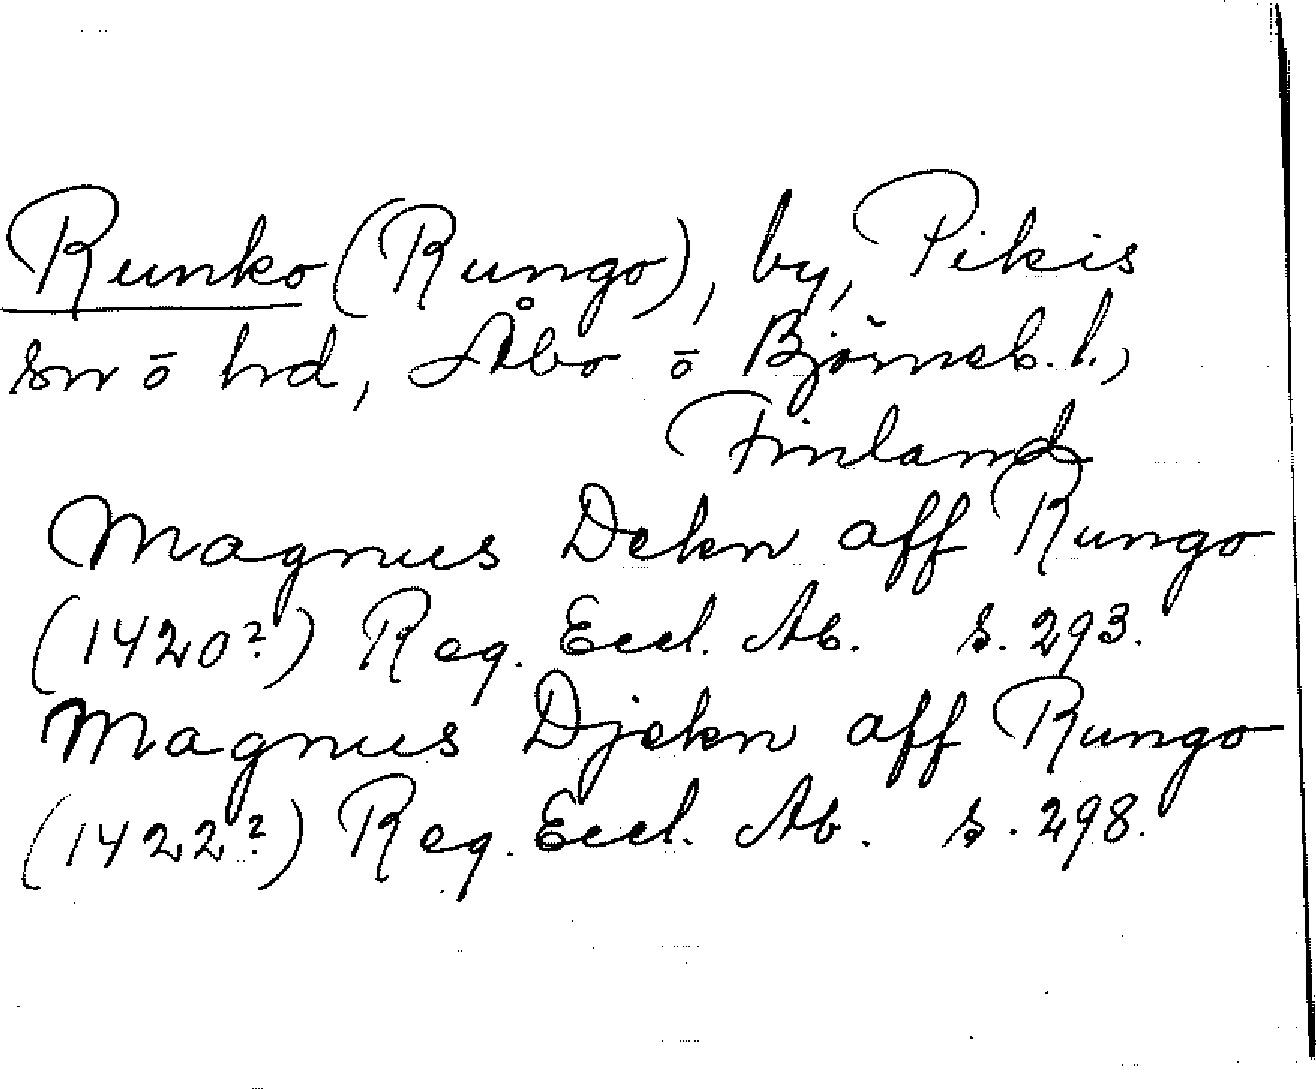 Runko (Rungo), by, Pikis
sn ō hd, Åbo ō Björneb. l.,
Finland
Magnus Dekn aff Rungo
(1420?) Reg. Eccl. Ab. s. 293.
Magnus Djekn aff Rungo
(1422?) Reg. Eccl. Ab. s. 298.